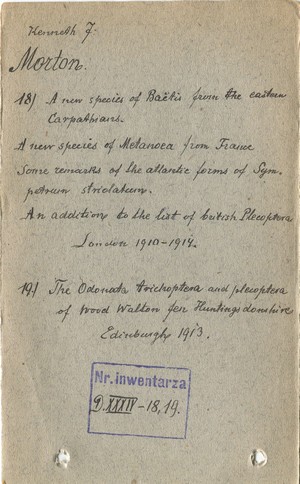 Kenneth J.
Morton.
18) A new species of Baëtis from the eastern
Carpathians.
A new species of Metanoea from France
Some remarks of the atlantic forms of Sym-
petrum striolatum.
An addition to the list of british Plecoptera
London 1910-1914.
19) The Odonata trichoptera and plecoptera
of Wood Walton fen Huntingsdonshire
Edinburgh 1913.
Nr. inwentarza
D.XXXIV-18,19.